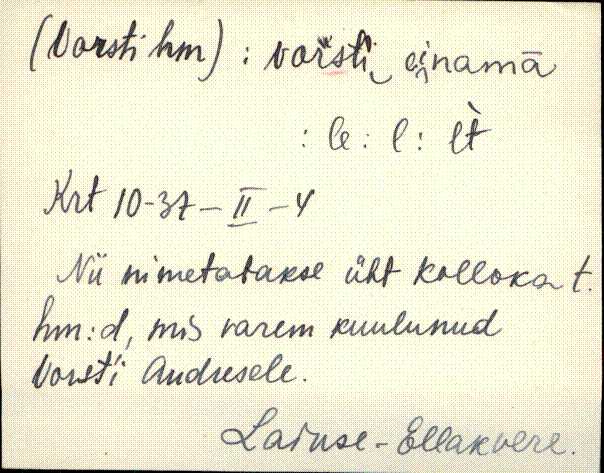 (Vorsti hm) : vorsti͜ einamā
: le : l : lt
Krt 10-37-II-4
Nii nimetatakse üht Kolloka t.
hm:d, mis varem kuulunud
Vorsti Andresele.
Laiuse-Ellakvere.